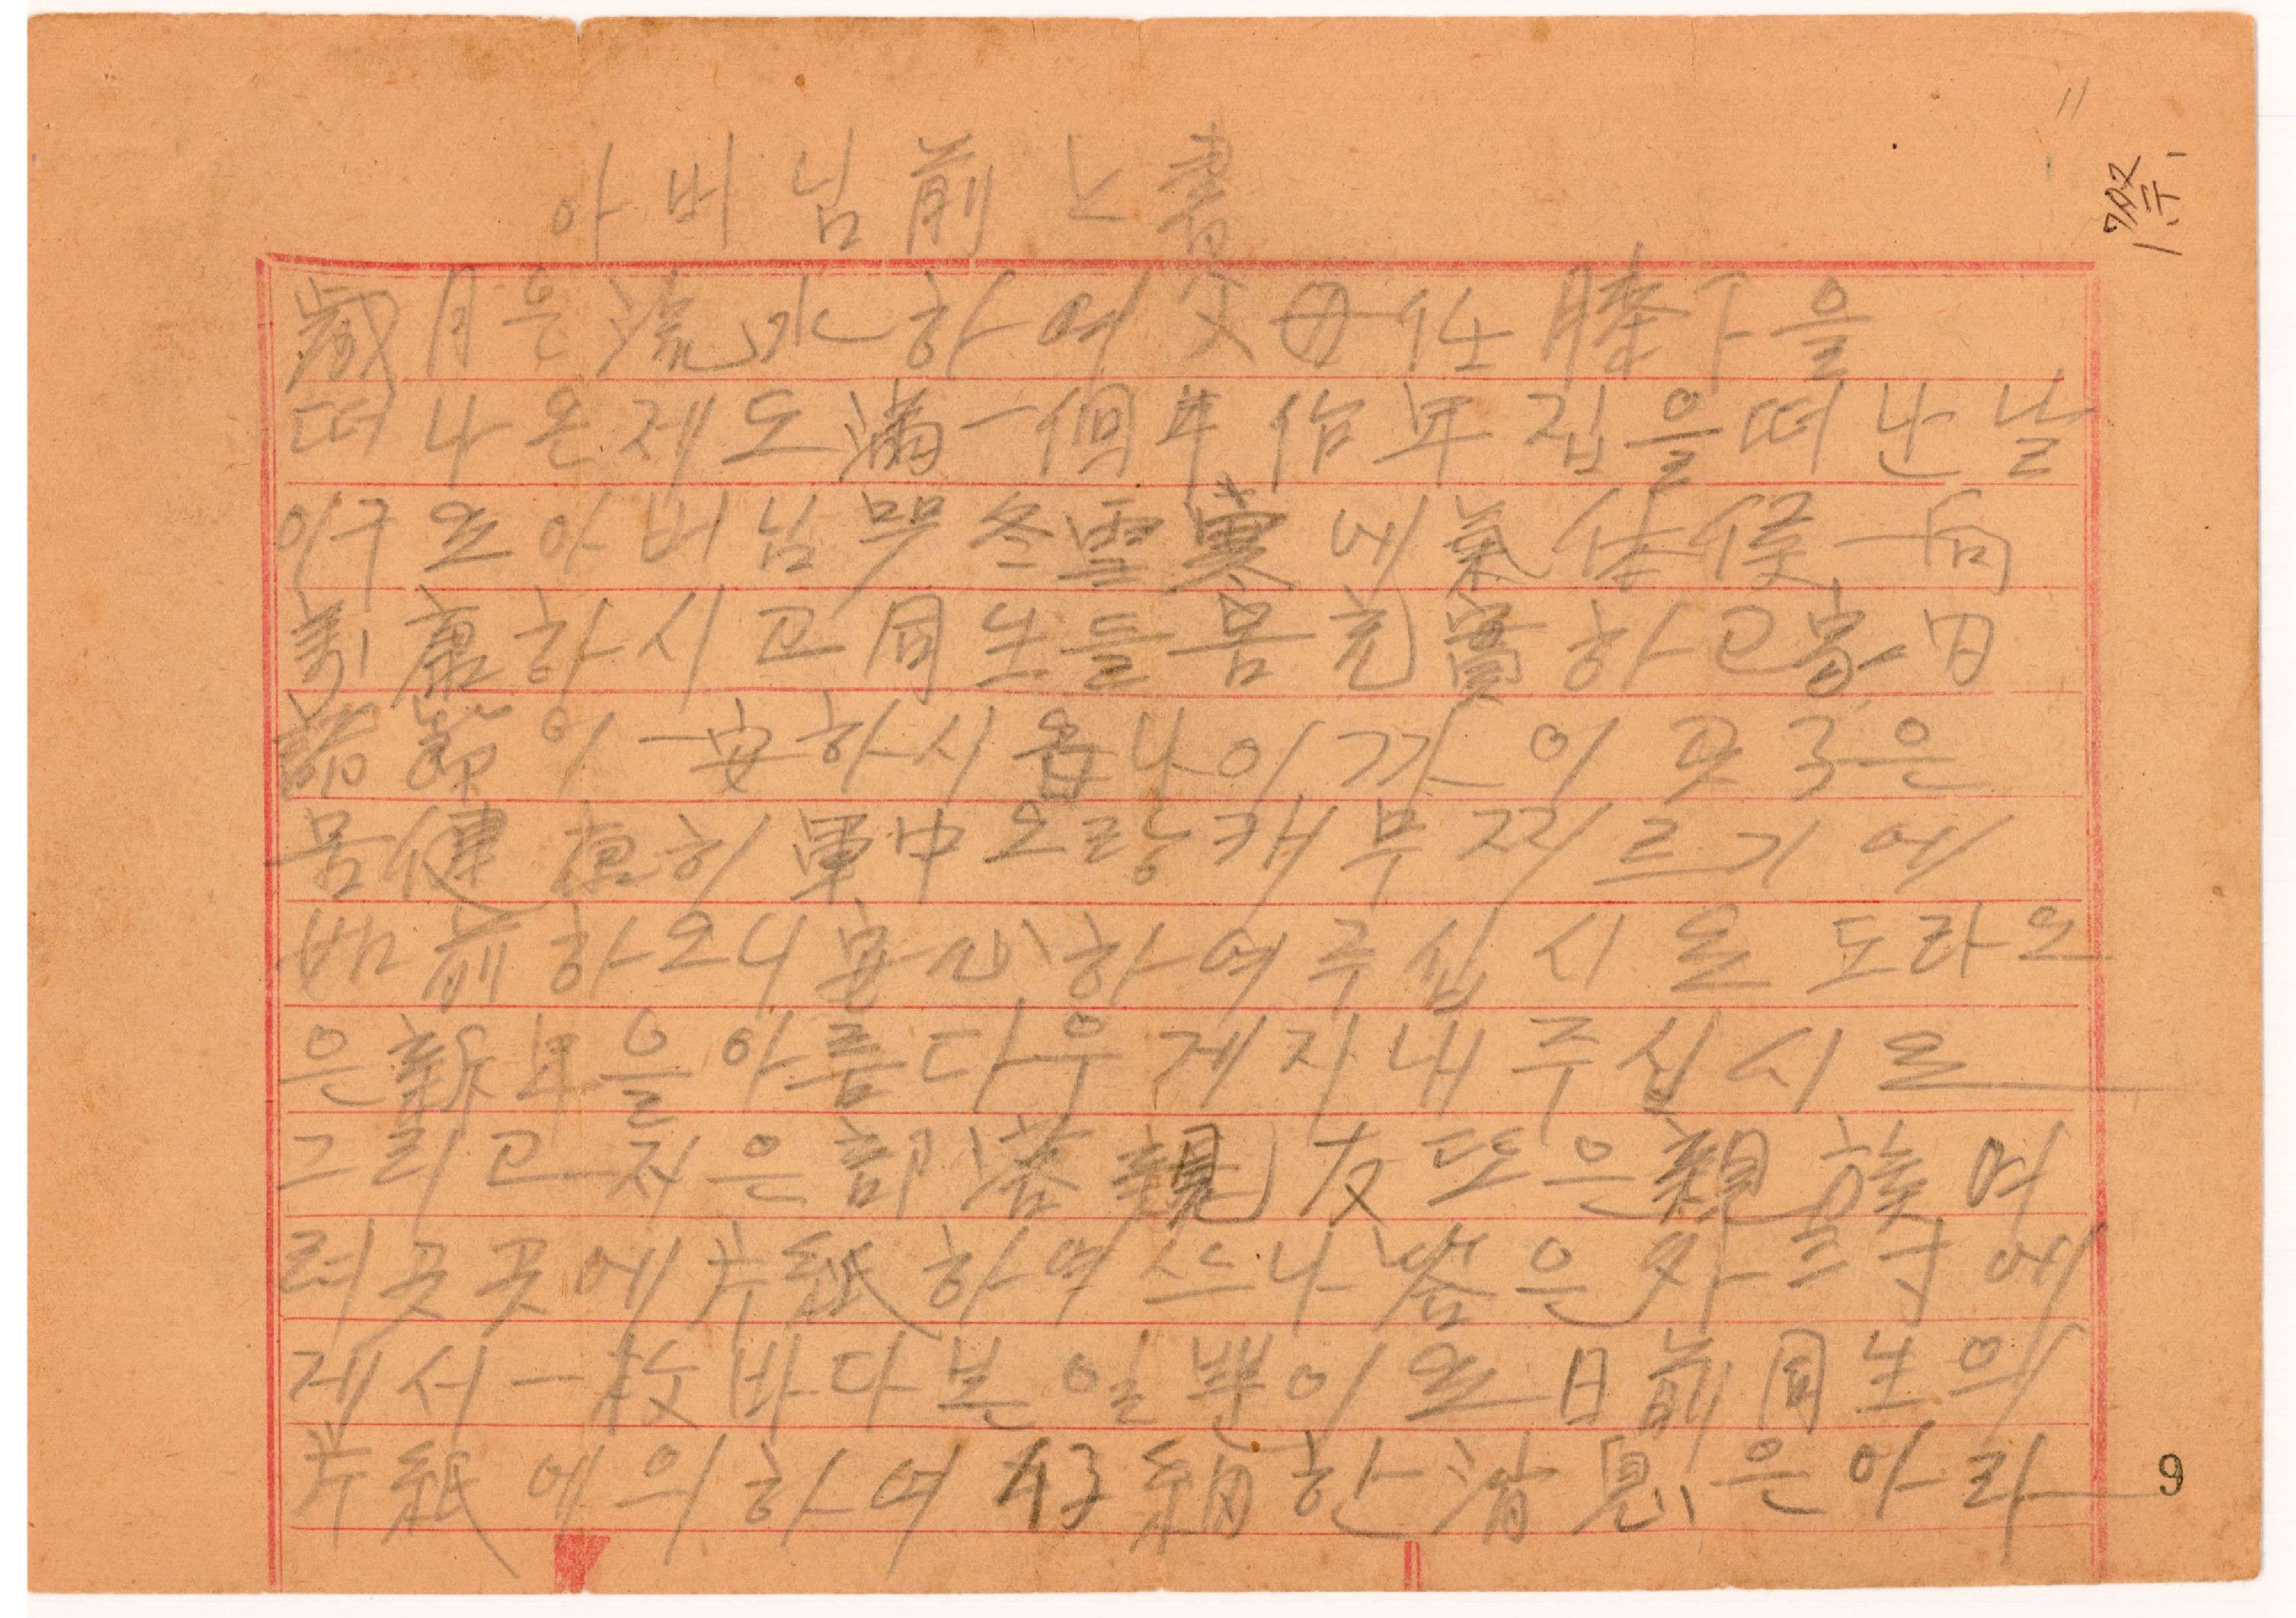 아버님前上書
歲月은流水하여父母任膝下을
떠나온제도滿一個年作年집을떠난날
이구요아버님嚴冬雪寒에氣体候一向
萬康하시고同生들몸充實하고家內
諸節이一安하시옵나이까이곳子은
몸健康히軍中오랑캐무찌르기에
如前하오니安心하여주십시요도라오
은新年을아름다우게지내주십시요
그리고저은部落親友또은親族여
러곳곳에片紙하여스나答은
제서一枚바다본일뿐이요日前同生의
片紙에의하여仔細한消息은아라
9